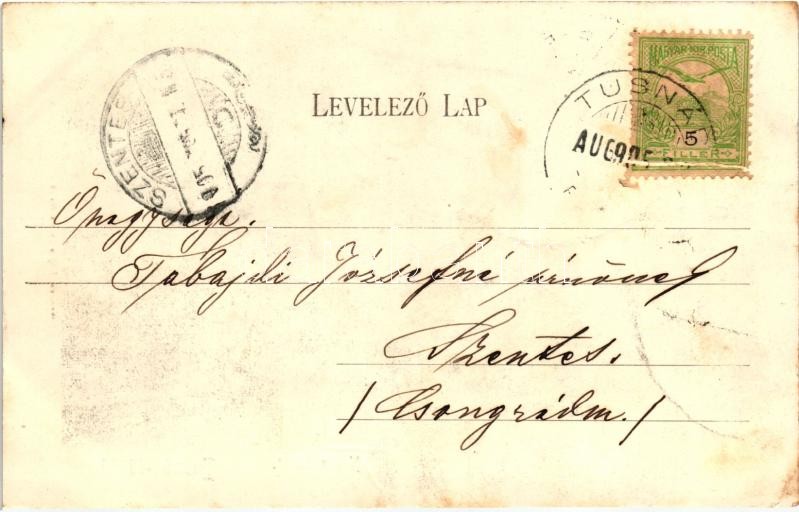 LEVELEZŐ LAP
MAGYAR KIR. POSTA
5
FILLER
TUSNÁD
AUG 905
SZENTES
Őnagysága.
Tabajdi Józsefné úrnőnek
Szentes.
/ Csongrádm. /